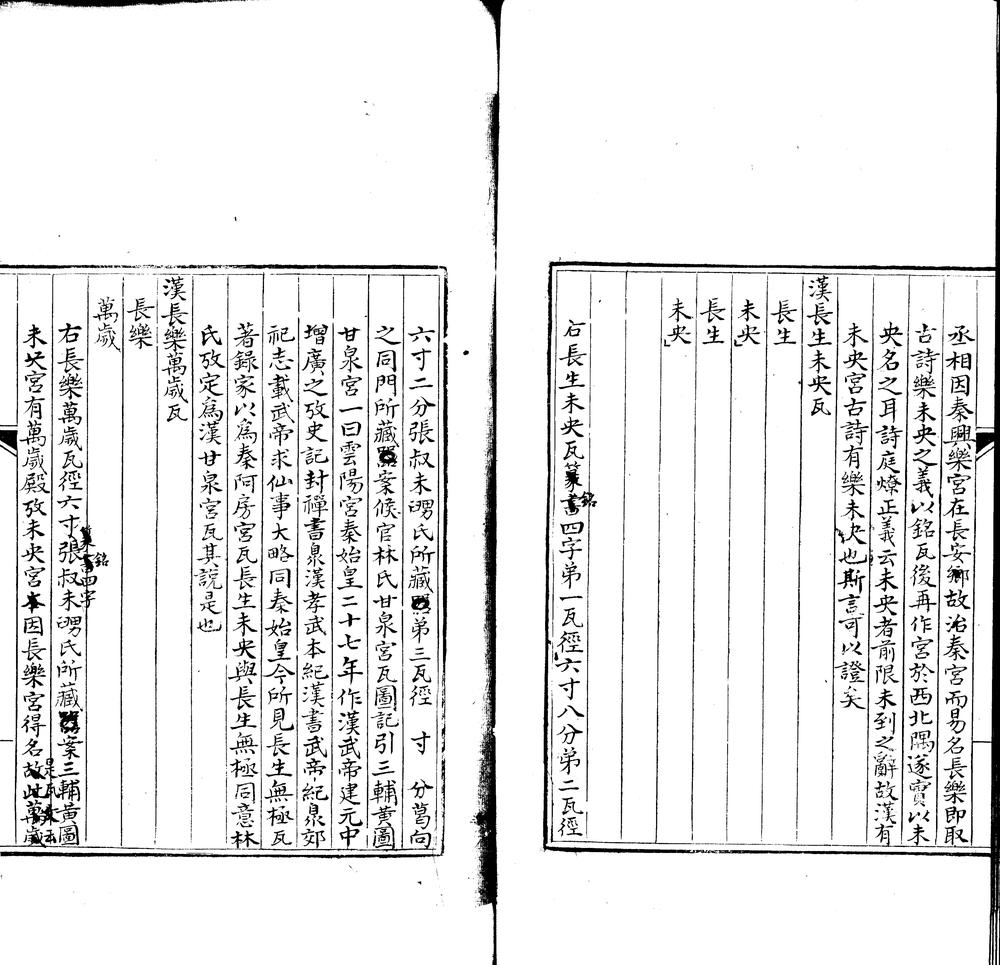 丞相因秦興樂宮在長安鄉故治秦宮而易名長樂即取
古詩樂未央之義以銘瓦後再作宮於西北隅遂實以未
央名之耳詩庭燎正義云未央者前限未到之辭故漢有
未央宮古詩有樂未央也斯言可以證矣
漢長生未央瓦
長生
未央
長生
未央
右長生未央瓦篆書銘四字弟一瓦徑六寸八分弟二瓦徑
六寸二分張叔未甥氏所藏弟三瓦徑　寸　分葛向
之同門所藏案候官林氏甘泉宮瓦圖記引三輔黃圖
甘泉宮一曰雲陽宮秦始皇二十七年作漢武帝建元中
增廣之攷史記封禪書泉漢孝武本紀漢書武帝紀泉郊
祀志載武帝求仙事大略同秦始皇今所見長生無極瓦
著錄家以爲秦阿房宮瓦長生未央與長生無極同意林
氏攷定爲漢甘泉宮瓦其說是也
漢長樂萬歲瓦
長樂
萬歲
右長樂萬歲瓦徑六寸篆書銘四字張叔未甥氏所藏案三輔黃圖
未央宮有萬歲殿攷未央宮因長樂宮得名故是瓦此萬歲